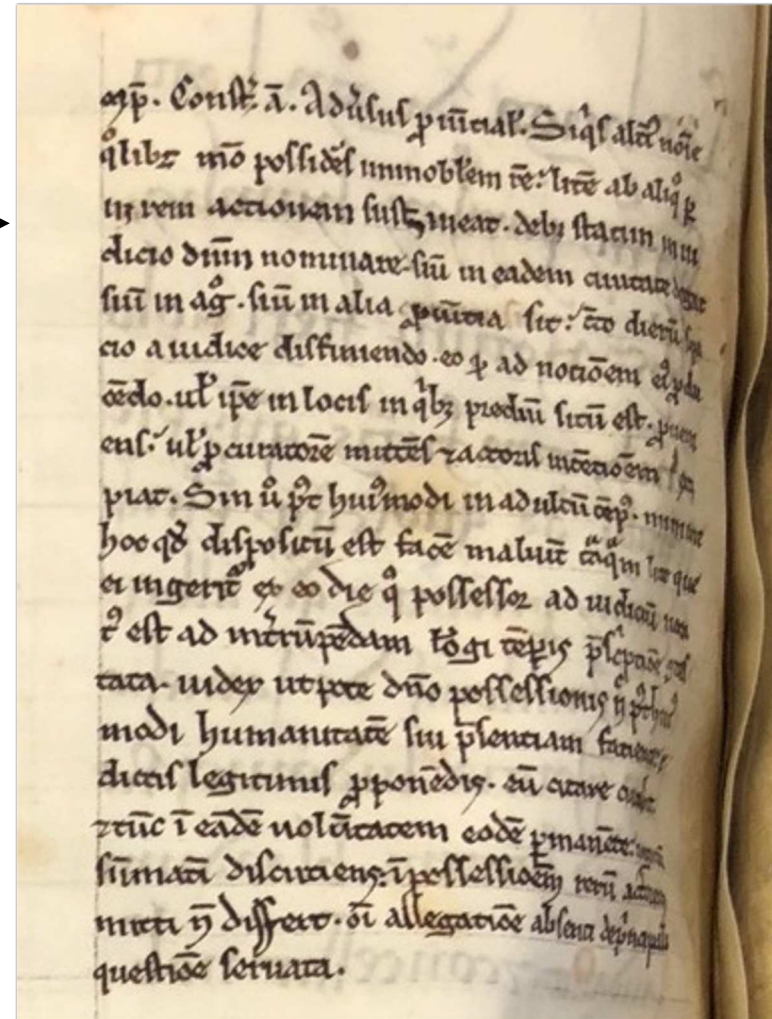 Imp̄. Constͭ. ā. Ad ůſuſ ꝓuītial̛. Siqͥſ altī noīe
qͦlibꝫ mō poſſidēſ immobłem rē: litē ab aliqͦ ꝑ
in rem actionem ſuſtineat. debꝫ ſtatim in iu
dicio dn̄m nominare. ſiū in eadem ciuitate degat
ſiū in agͦ. ſiū in alia ꝓuītia ſit: c̄to dierū ſpa
cio a iudice diffiniendo. eo ꝙ ad notiōem eiꝰ ꝑdu
cēdo. ul̛ ip̄e in lociſ in qͥbꝫ prediū ſitū eſt. ꝑueni
enſ: ul̛ ꝓcuratorē mittēſ ⁊ actoriſ intētiōem
piat. Sin ů pͦt huiꝰmodi in ad ultū tēpꝰ. minime
hoc qđ diſpoſitū eſt facē maluīt tāqͣm lite que
ei ingerit᷑ ex eo die qͦ poſſeſſor ad iudiciū uoca
tꝰ eſt ad int̛rūpēdam lōgi tēꝑis p̄ſcͥptiōē
tata. iudex utpote dn̄o poſſeſſionis n̄ pͦt huiꝰ
modi humanitatē ſui p̄ſentiam faciente
dictiſ legitimiſ ꝓponēdis. eū citare curabit
⁊ tūc ī eadē uolūtatem eodē ꝑmanēte
ſūmatī diſcutienſ: ī poſſeſſioēm rerū actorem
mitti n̄ differt. oī allegatiōe abſenti de pͥncipali
queſtiōe ſeruata.